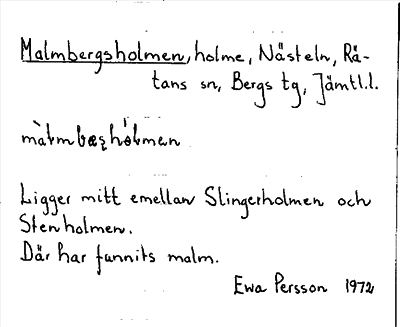 Malmbergsholmen, holme, Nästeln, Rä-
tans sn, Bergs tg, Jämtl.l.
màlmbæʂhólmen
Ligger mitt emellan Slingerholmen och
Stenholmen.
Där har funnits malm.
Ewa Persson 1972